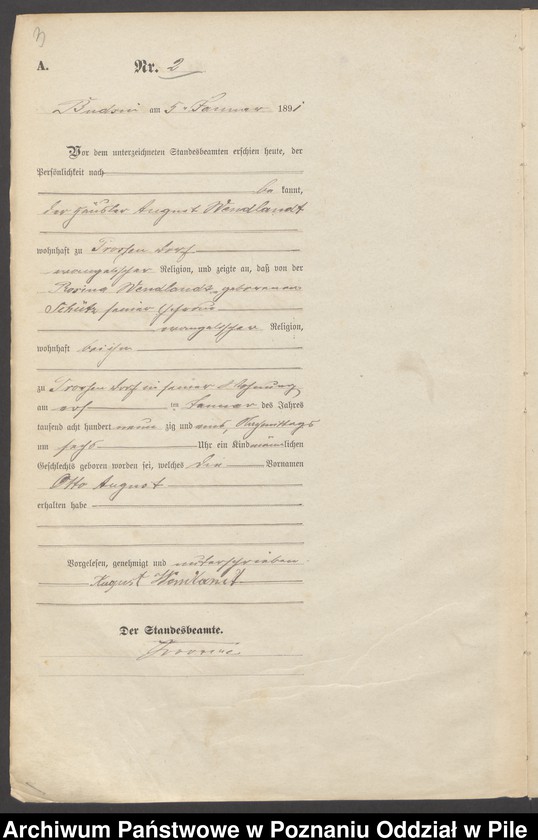 3
A. Nr. 2
Budsin am 5. Januar 1891
Vor dem unterzeichneten Standesbeamten erschien heute, der
Persönlichkeit nach
be kannt,
der Häusler August Wendlandt
wohnhaft zu Dorf
evangelischer Religion, und zeigte an, daß von der
Rosina Wendlandt, geborenen
Schütz seiner Ehefrau
evangelischer Religion,
wohnhaft bei ihm
zu Dorf in seiner Wohnung
am Januar des Jahres
tausend acht hundert neun zig und eins, Nachmittags
um sechs Uhr ein Kind männlichen
Geschlechts geboren worden sei, welches die Vornamen
Otto August
erhalten habe
Vorgelesen, genehmigt und unterschrieben
August Wendlandt
Der Standesbeamte.
Archiwum Państwowe w Poznaniu Oddział w Pile